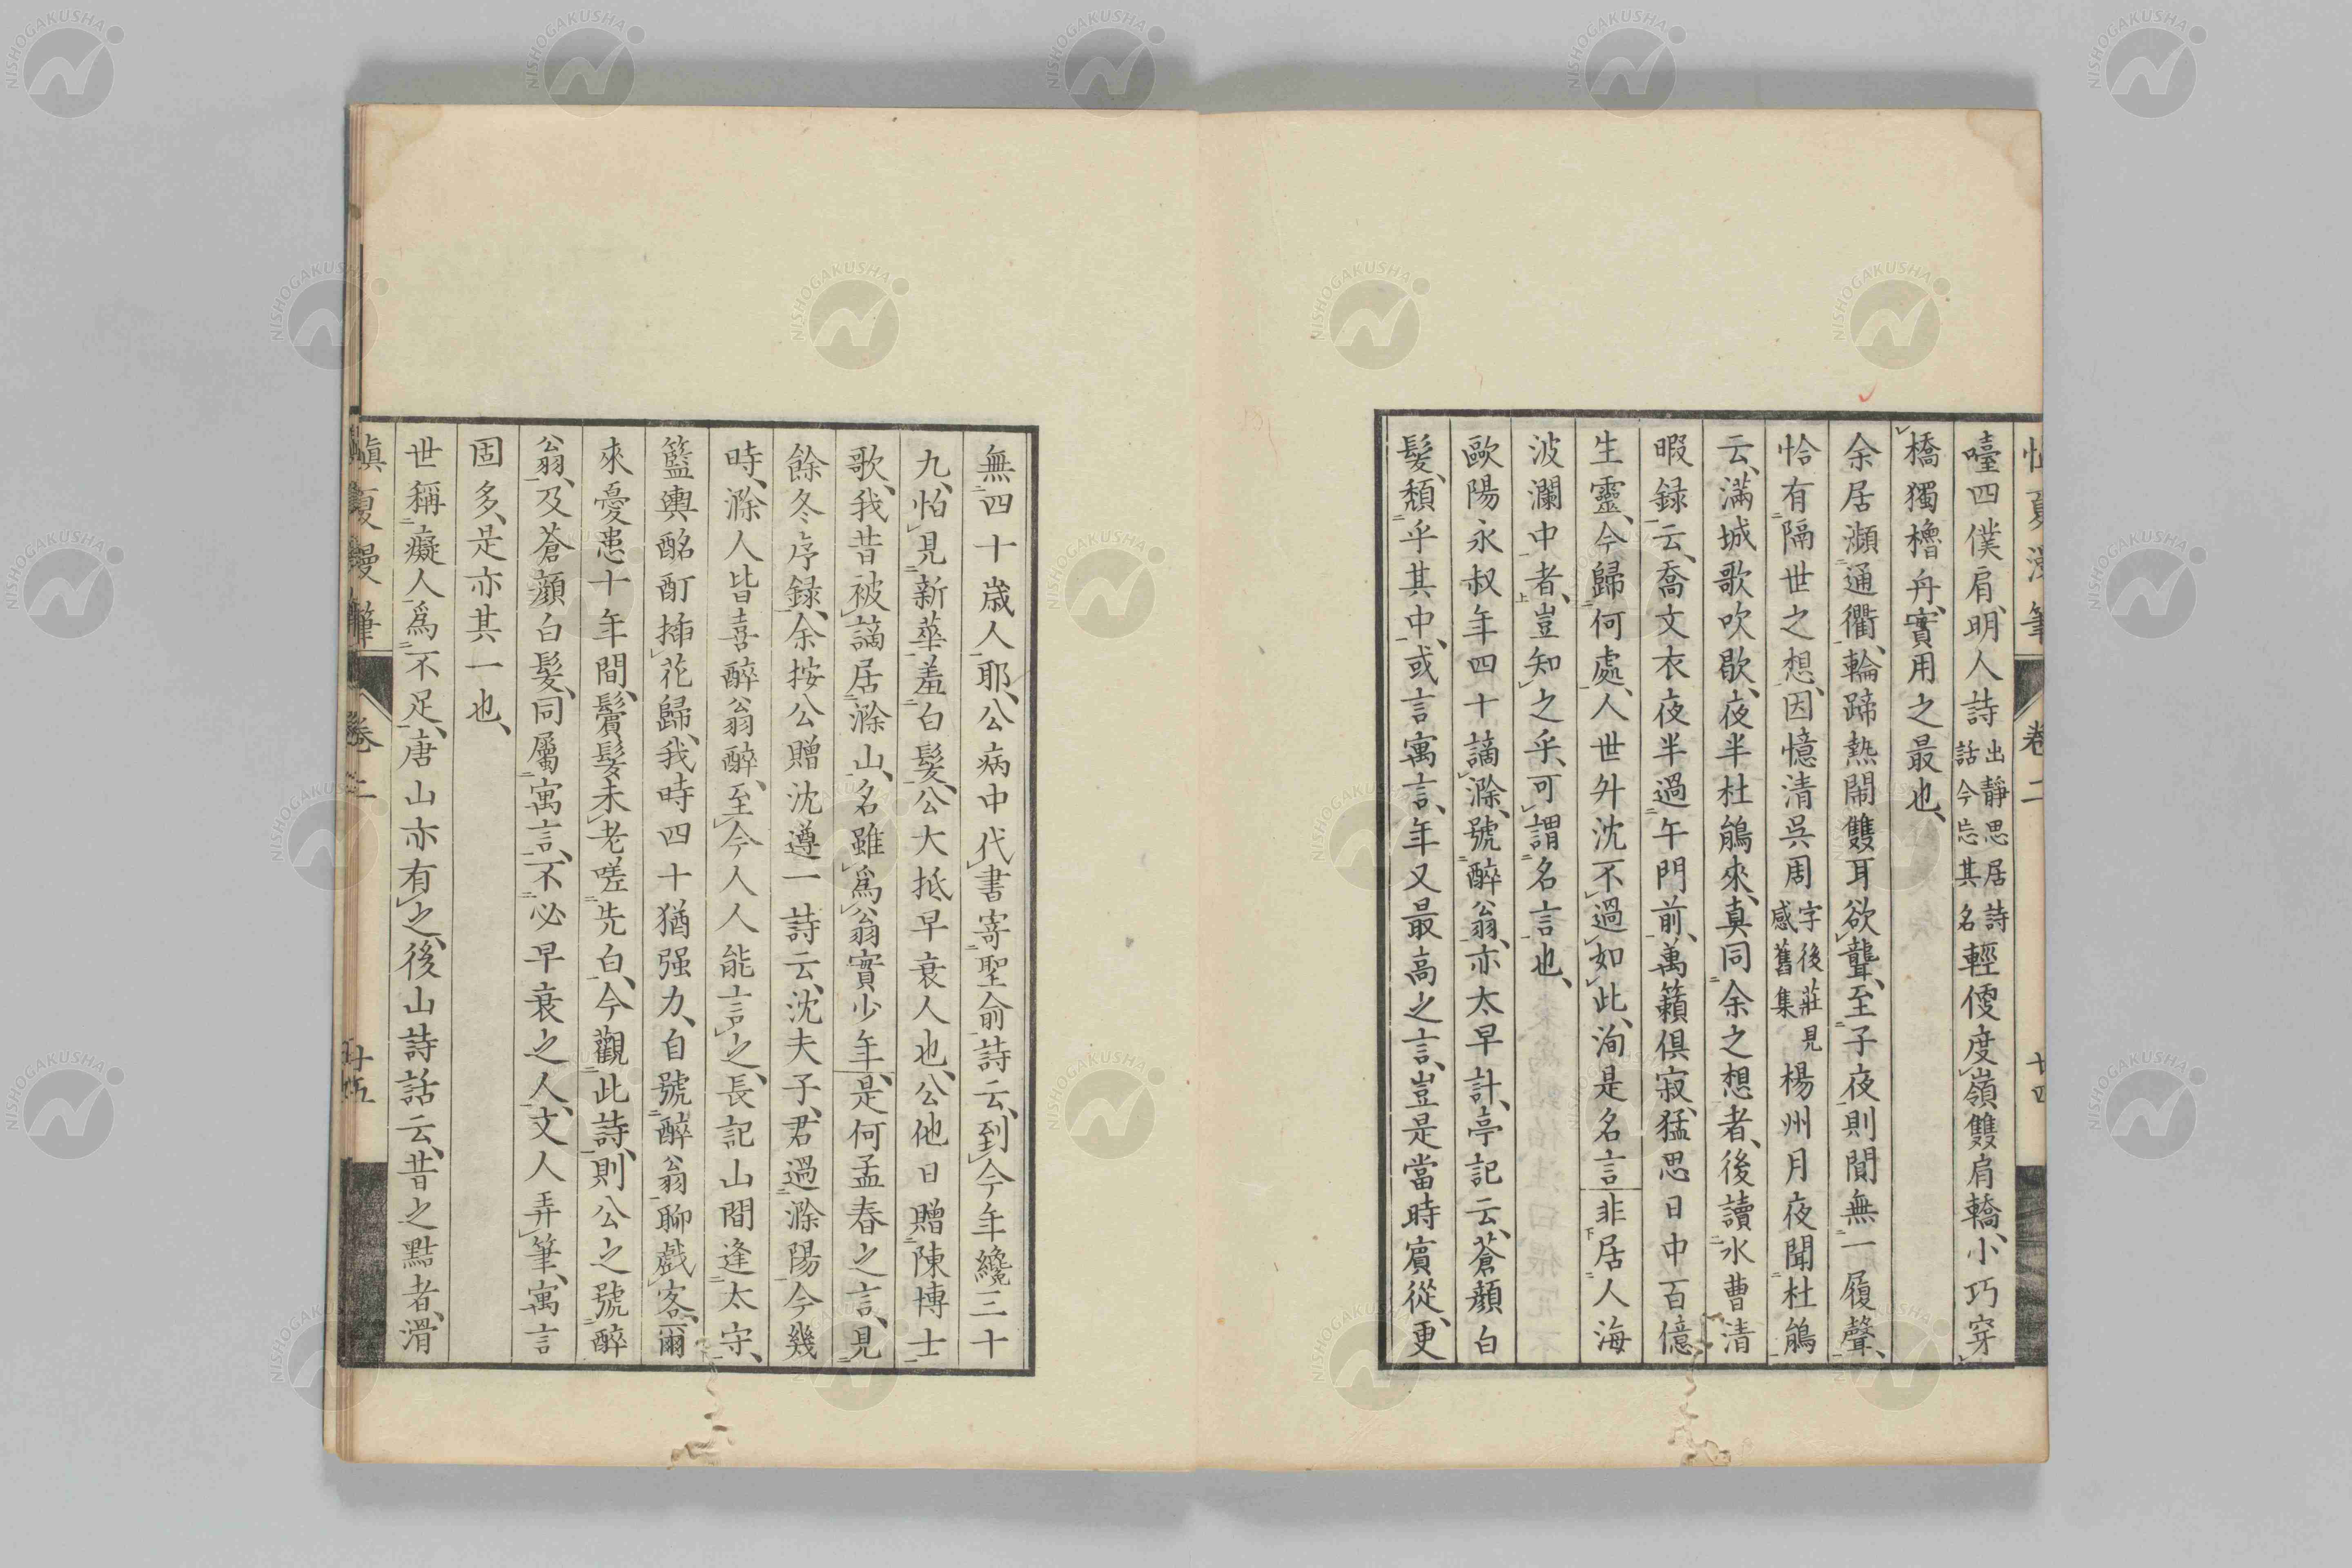 臺四僕肩、明人詩出靜思居詩話今忘其名輕傻度嶺雙肩轎、小巧穿
橋獨櫓舟、實用之最也、
余居瀕通衢、輪蹄熱鬧雙耳欲聾、至子夜則閴無一履聲、
恰有隔世之想、因憶清呉周字後莊見感舊集楊州月夜聞杜鵑
云、滿城歌吹歇、夜半杜鵑來、真同余之想者、後讀水曹清
暇録云、喬文衣夜半過午門前、萬籟俱寂、猛思日中百億
生靈、今歸何處、人世升沈不過如此、洵是名言非居人海
波瀾中者、豈知之乎、可謂名言也、
歐陽永叔年四十謫滁、號醉翁、亦太早計、亭記云、蒼顏白
髮、頽乎其中、或言寓言、年又最高之言、豈是當時賓從、更
無四十歳人耶、公病中代書寄聖俞詩云、到今年纔三十
九、怕見新華羞白髮、公大抵早衰人也、公他日贈陳博士
歌、我昔被謫居滁山、名雖爲翁實少年、是何孟春之言、見
餘冬序録、余按公贈沈遵一詩云、沈夫子、君過滁陽今幾
時、滁人皆喜醉翁醉、至今人人能言之、長記山間逢太守、
籃輿酩酊插花歸、我時四十猶强力、自號醉翁聊戲客、爾
來憂患十年間、鬢髮未老嗟先白、今觀此詩、則公之號醉
翁、及蒼顏白髮、同屬寓言、不必早衰之人、文人弄筆、寓言
固多、是亦其一也、
世稱癡人爲不足、唐山亦有之、後山詩話云、昔之黠者、滑
卷二